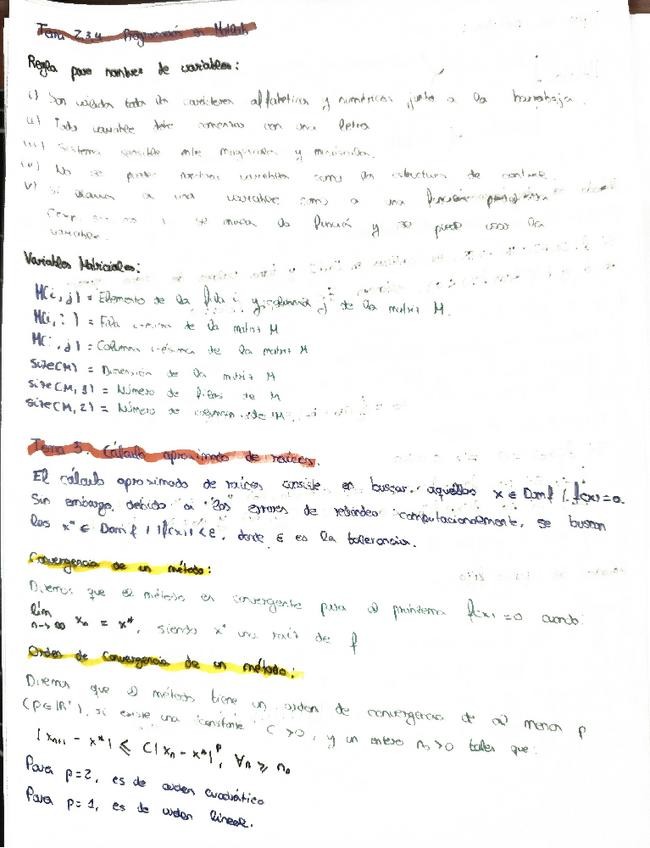 Tema 2,3,4 Programación en Matlab
Regla para nombres de variables:
i) Son válidos todos los carácteres alfabéticos y numéricos, junto a la barrabaja.
ii) Toda variable debe comenzar con una letra
iii) Sistema sensible entre mayúsculas y minúsculas.
iv) No se puede nombrar variables como las estructuras de control.
v) Si llamas a una variable como a una función
se la función y se puede usar la
variable.
Variables Matriciales:
M(i,j) = Elemento de la fila i y columna j de la matriz M.
M(i,:) = Fila i-ésima de la matriz M
M(:,j) = Columna j-ésima de la matriz M
size(M) = Dimensión de la matriz M
size(M,1) = Número de filas de M
size(M,2) = Número de columnas de M
Tema 5. Cálculo aproximado de raíces.
El cálculo aproximado de raíces consiste en buscar aquellos x ∈ Dom f / f(x)=0.
Sin embargo, debido a los errores de redondeo computacionalmente, se buscan
los x* ∈ Dom f / |f(x)| < ε, donde ε es la tolerancia.
Convergencia de un método:
Diremos que el método es convergente para el problema f(x)=0 cuando
lím n→∞ xn = x*, siendo x* una raíz de f
Orden de convergencia de un método:
Diremos que el método tiene un orden de convergencia de al menos p
(p∈ℝ⁺), si existe una constante C>0, y un entero n₀>0 tales que:
|xn+1 - x*| ≤ C|xn - x*|^p, ∀n ≥ n₀
Para p=2, es de orden cuadrático
Para p=1, es de orden lineal.